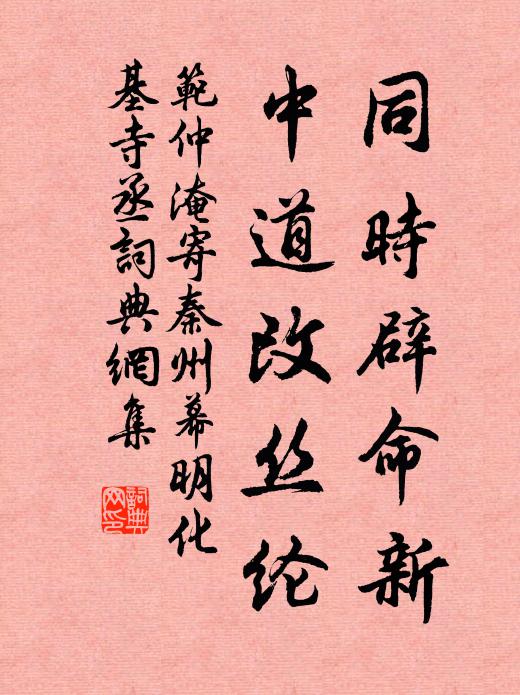 同時辟命新
中道改丝纶
範仲淹寄秦州幕明化
基寺丞詞典網集
詞典
网印